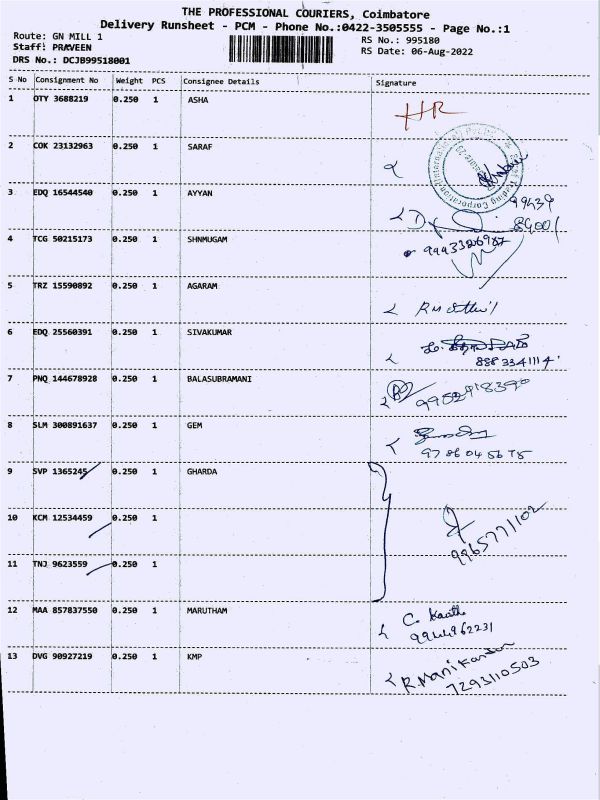 THE PROFESSIONAL COURIERS, Coimbatore
Delivery Runsheet - PCM - Phone No.:0422-3505555 - Page No.:1
Route: GN MILL 1
RS No.: 995180
Staff: PRAVEEN
RS Date: 06-Aug-2022
DRS No.: DCJB99518001
S No Consignment No Weight PCS Consignee Details Signature
1 OTY 3688219 0.250 1 ASHA HR
2 COK 23132963 0.250 1 SARAF
3 EDQ 16544540 0.250 1 AYYAN 99439
84001
4 TCG 50215173 0.250 1 SHNMUGAM
5 TRZ 15590892 0.250 1 AGARAM
6 EDQ 25560391 0.250 1 SIVAKUMAR
8883341114
7 PNQ 144678928 0.250 1 BALASUBRAMANI
9952918390
8 SLM 300891637 0.250 1 GEM
9786045675
9 SVP 1365245 0.250 1 GHARDA
10 KCM 12534459 0.250 1
9965771102
11 TNJ 9623559 0.250 1
12 MAA 857837550 0.250 1 MARUTHAM
9944962231
13 DVG 90927219 0.250 1 KMP R.Manikandan
7293110503